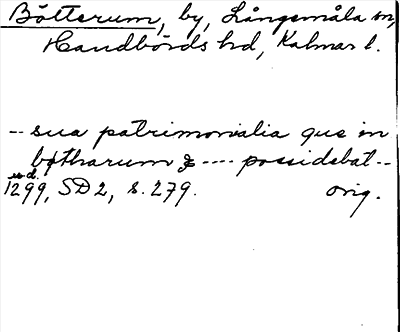 Bötterum, by, Långemåla sn,
Handbörds hd, Kalmar l.
-- sua patrimonialia que in
bøtharum &---- possidebat --
u.d.
1299, SD 2, s. 279. orig.